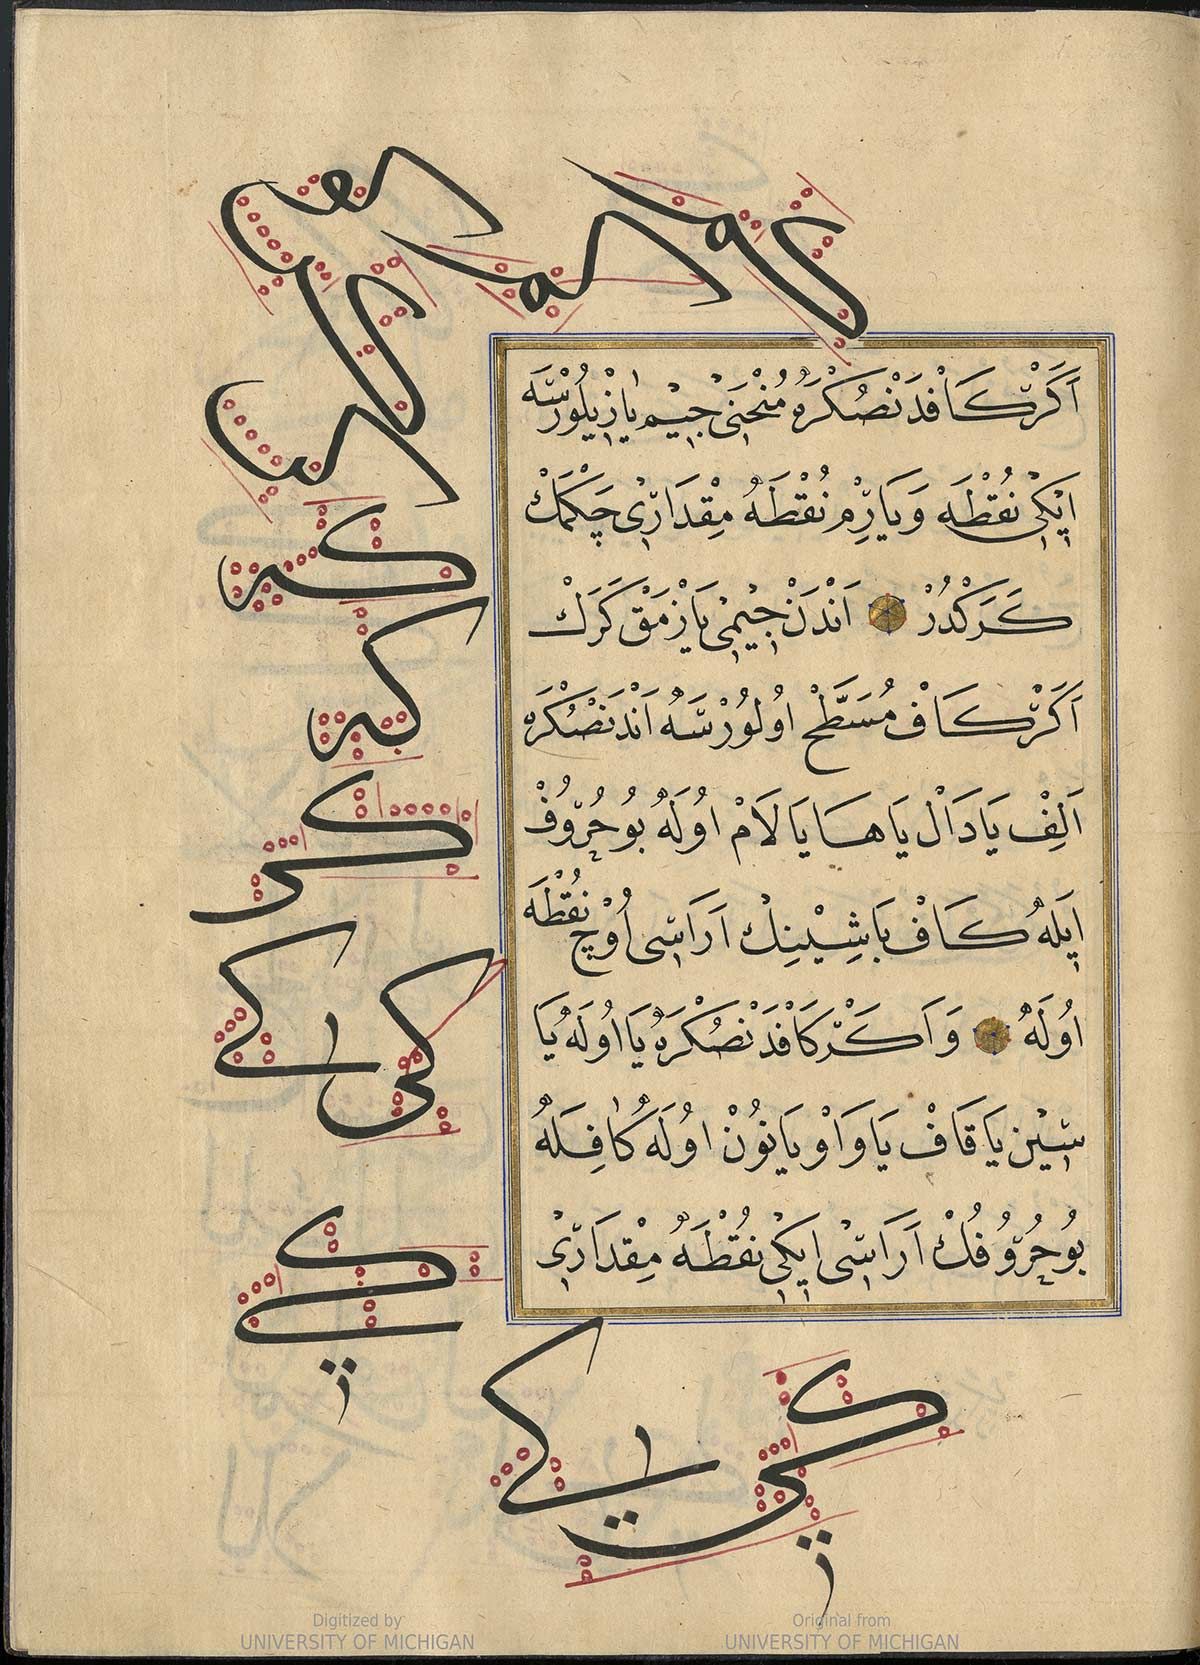 اَكَرْ كَافْدَنْصُكْرَهُ مُنْحَنِى جِيْم يَازِيلُورْسَه
اِيكِى نُقْطَه وَيَارِمْ نُقْطَهُ مِقْدَارِىْ چَكْمَكْ
كَرَكْدُرْ اَنْدَنْ جِيْمِىْ يَازْمَقْ كَرَكْ
اَكَرْ كَافْ مُسَطَّحْ اُولُورْسَهُ اَنْدَنْصُكْرَه
اَلِفْ يَادَالْ يَاهَا يَالَامْ اُولَهُ بُوحُرُوفْ
اِيلَهُ كَافْ بَاشِيْنِكْ اَرَاسِى اُوْچْ نُقْطَه
اُولَهُ وَاَكَرْ كَافْدَنْصُكْرَهُ يَا اُولَهُ يَا
سِيْن يَاقَافْ يَاوَاوْ يَانُونْ اُولَهُ كَافِلَهُ
بُوحُرُوفُكْ اَرَاسِىْ اِيكِىْ نُقْطَهُ مِقْدَارِىْ
Digitized by
UNIVERSITY OF MICHIGAN
Original from
UNIVERSITY OF MICHIGAN